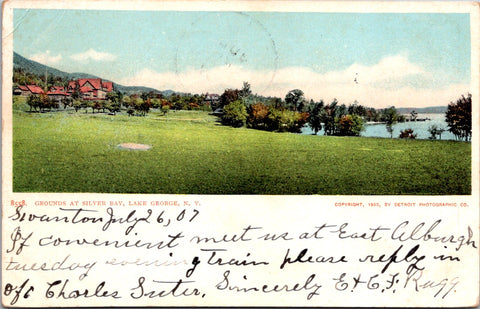 8558. GROUNDS AT SILVER BAY, LAKE GEORGE, N. Y.
COPYRIGHT, 1905, BY DETROIT PHOTOGRAPHIC CO.
Swanton July 26, 07
If convenient meet us at East Alburgh
tuesday evening train please reply in
o/c Charles Suter, Sincerely E & C. F. Rugg.